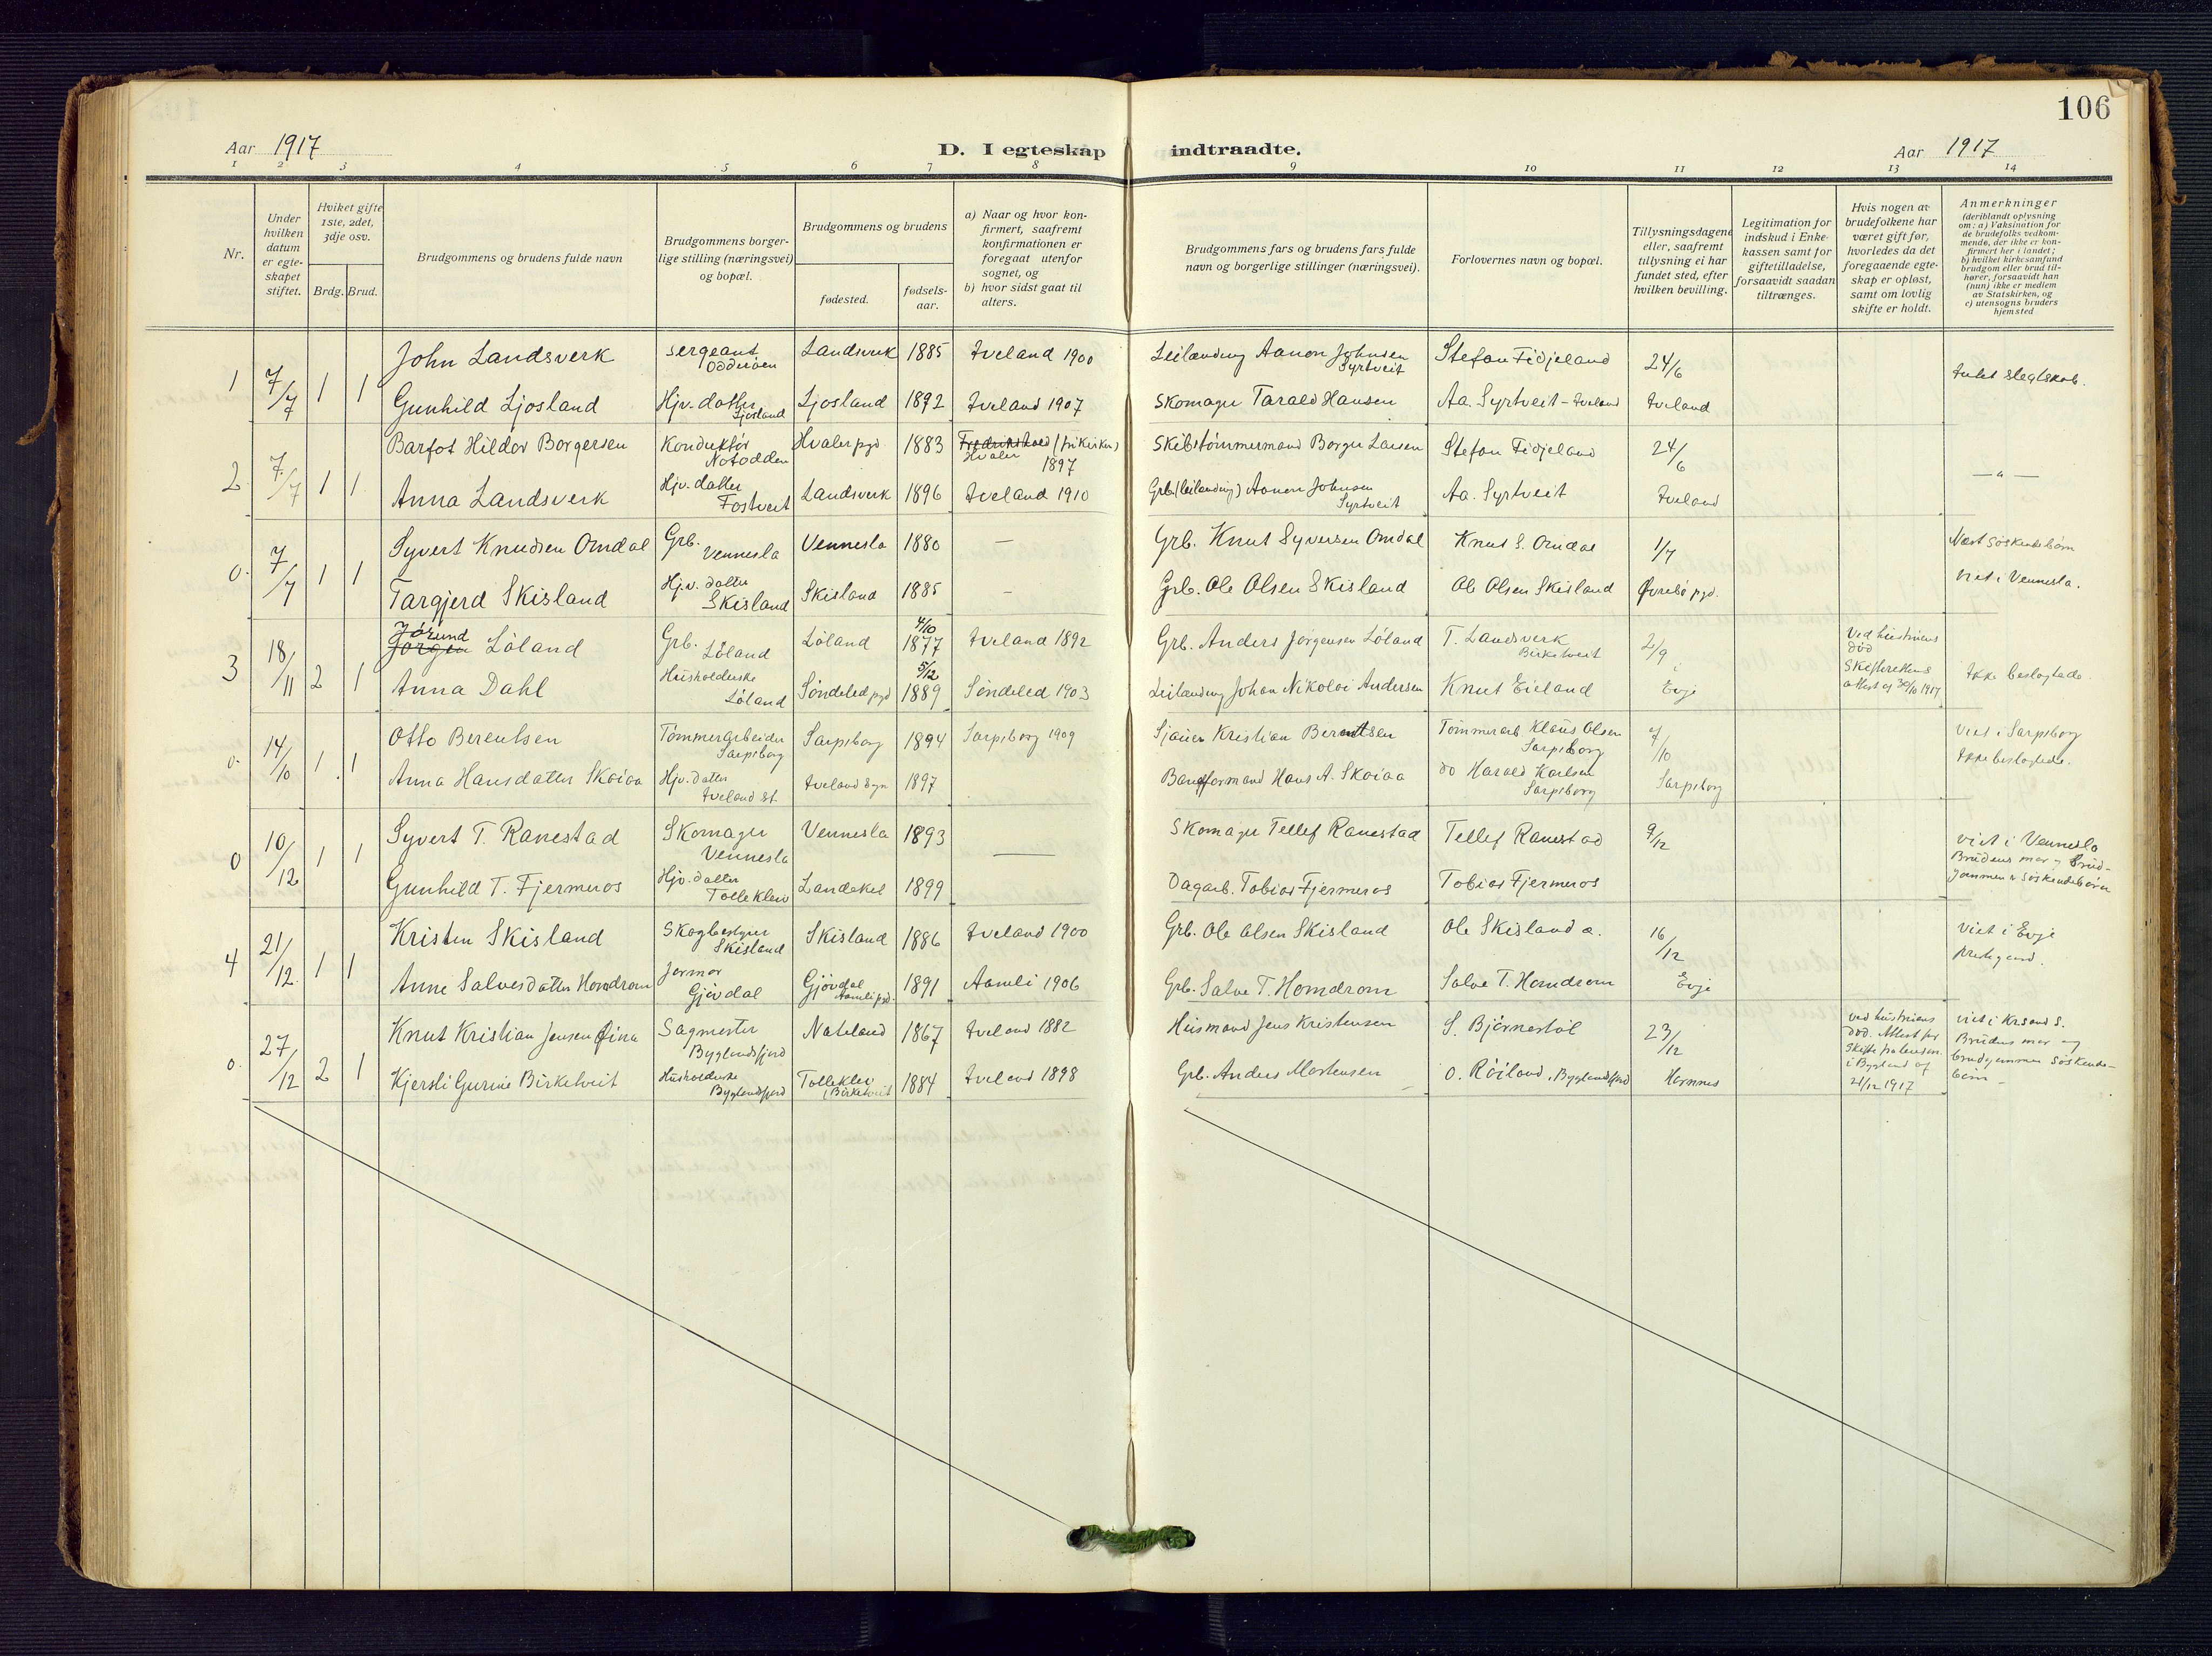 106
Aar 1917
D. I egteskap indtraadte.
Aar 1917
1 2 3 4 5 6 7 8 9 10 11 12 13 14
Nr.
Under hvilken datum er egteskapet stiftet.
Hviket gifte 1ste, 2det, 3dje osv.
Brdg. Brud.
Brudgommens og brudens fulde navn
Brudgommens borgerlige stilling (næringsvei) og bopæl.
Brudgommens og brudens
fødested.
fødselsaar.
a) Naar og hvor konfirmert, saafremt konfirmationen er foregaat utenfor sognet, og
b) hvor sidst gaat til alters.
Brudgommens fars og brudens fars fulde navn og borgerlige stillinger (næringsvei).
Forlovernes navn og bopæl.
Tillysningsdagene eller, saafremt tillysning ei har fundet sted, efter hvilken bevilling.
Legitimation for indskud i Enkekassen samt for giftetilladelse, forsaavidt saadan tiltrænges.
Hvis nogen av brudefolkene har været gift før, hvorledes da det foregaaende egteskap er opløst, samt om lovlig skifte er holdt.
Anmerkninger
(deriblandt oplysning om: a) Vaksination for de brudefolks vedkommende, der ikke er konfirmert her i landet; b) hvilket kirkesamfund brudgom eller brud tilhører, forsaavidt han (hun) ikke er medlem av Statskirken, og c) utensogns bruders hjemsted
1 7/7 1 1
John Landsverk Sergeant Odderøen Landsverk 1885 Iveland 1900 Leilænding Aanon Johnsen Syrtveit Stefan Fidjeland 24/6 Intet slegtskab.
Gunhild Ljosland Hjv. datter Ljosland Ljosland 1892 Iveland 1907 Skomager Tarald Hansen Aa. Syrtveit - Iveland Iveland
2 7/7 1 1
Barfot Hildor Borgersen Konduktör Notodden Hvaler pgd 1883 Fredrikshald (frikirken) Hvaler 1897 Skibstømmermand Borger Larsen Stefan Fidjeland 24/6 — " —
Anna Landsverk Hjv. datter Fostveit Landsverk 1896 Iveland 1910 Grb. (leilænding) Aanon Johnsen Syrtveit Aa. Syrtveit Iveland
0. 7/7 1 1
Syvert Knudsen Omdal Grb. Vennesla Vennesla 1880 — Grb. Knut Syversen Omdal Knut S. Omdal 1/7 Næst söskendebörn
Targjerd Skisland Hjv. datter Skisland Skisland 1885 — Grb. Ole Olsen Skisland Ole Olsen Skisland Øvrebö pgd. viet i Vennesla.
3 18/11 2 1
Jörund Jörgen Löland Grb. Löland Löland 4/10 1877 Iveland 1892 Grb. Anders Jörgensen Löland T. Landsverk Birketveit 2/9 Ved hustruens död Skifterettens attest af 30/10 1917 Ikke beslegtede
Anna Dahl Husholderske Löland Söndeled pgd 5/12 1889 Söndeled 1903 Leilænding Johan Nikolai Andersen Knut Eieland i Evje
0. 14/10 1 1
Otto Berentsen Tömmerarbeider Sarpsborg Sarpsborg 1894 Sarpsborg 1909 Sjauer Kristian Berntsen Tömmerarb Klaus Olsen Sarpsborg 7/10 viet i Sarpsborg
Anna Hansdatter Skaiaa Hjv. datter Iveland st. Iveland sgn 1897 Baneformand Hans A. Skaiaa do Harald Karlsen Sarpsborg Sarpsborg Ikke beslegtede.
0 10/12 1 1
Syvert T. Ranestad Skomager Vennesla Vennesla 1893 — Skomager Tellef Ranestad Tellef Ranestad 9/12 viet i Vennesla
Gunhild T. Fjermeros Hjv. datter Tolleklev Landekel 1899 Dagarb. Tobias Fjermeros Tobias Fjermeros Brudens mor og Brudgommen er Söskendebörn
4 21/12. 1 1
Kristen Skisland Skogbestyrer Skisland Skisland 1886 Iveland 1900 Grb. Ole Olsen Skisland Ole Skisland 16/12 Viet i Evje prestegaard.
Anne Salvesdatter Homdrom Jormor Gjövdal Gjövdal Aamli pgd. 1891 Aamli 1906 Grb. Salve T. Homdrom Salve T. Homdrom Evje
0. 27/12 2 1
Knut Kristian Jensen Sagmester Byglandsfjord Nateland 1867 Iveland 1882 Husmand Jens Kristensen S. Björnestöl 23/12 ved hustruens död. Attest for Skifte i Bygland af 21/12 1917 viet i Krsand S.
Kjersti Gurine Birketveit Husholderske Byglandsfjord Tolleklev (Birketveit 1884 Iveland 1898 Grb. Anders Mortensen O. Röiland, Byglandsfjord Hornnes Brudens mor og brudgommen söskendebörn —